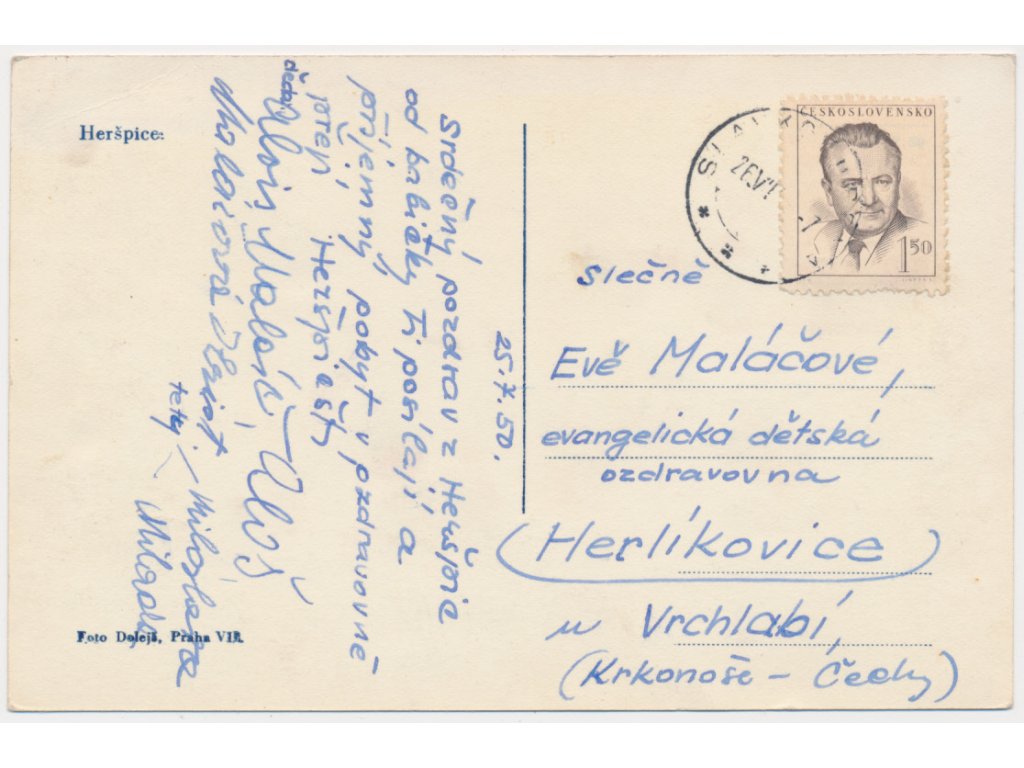 Heršpice:
Srdečný pozdrav z Heršpic
od babičky Ti posílají a
příjemný pobyt v ozdravovně
přeń Heršpičtí
děda:
Alois Maláč, Aloš
Maláčová
tety:
Miloslava
Milada
25.7.50.
Foto Dolejš, Praha VII.
ČESKOSLOVENSKO
1 50
Slečně
Evě Maláčové,
evangelická dětská
ozdravovna
(Herlíkovice)
u Vrchlabí,
(Krkonoše - Čechy)